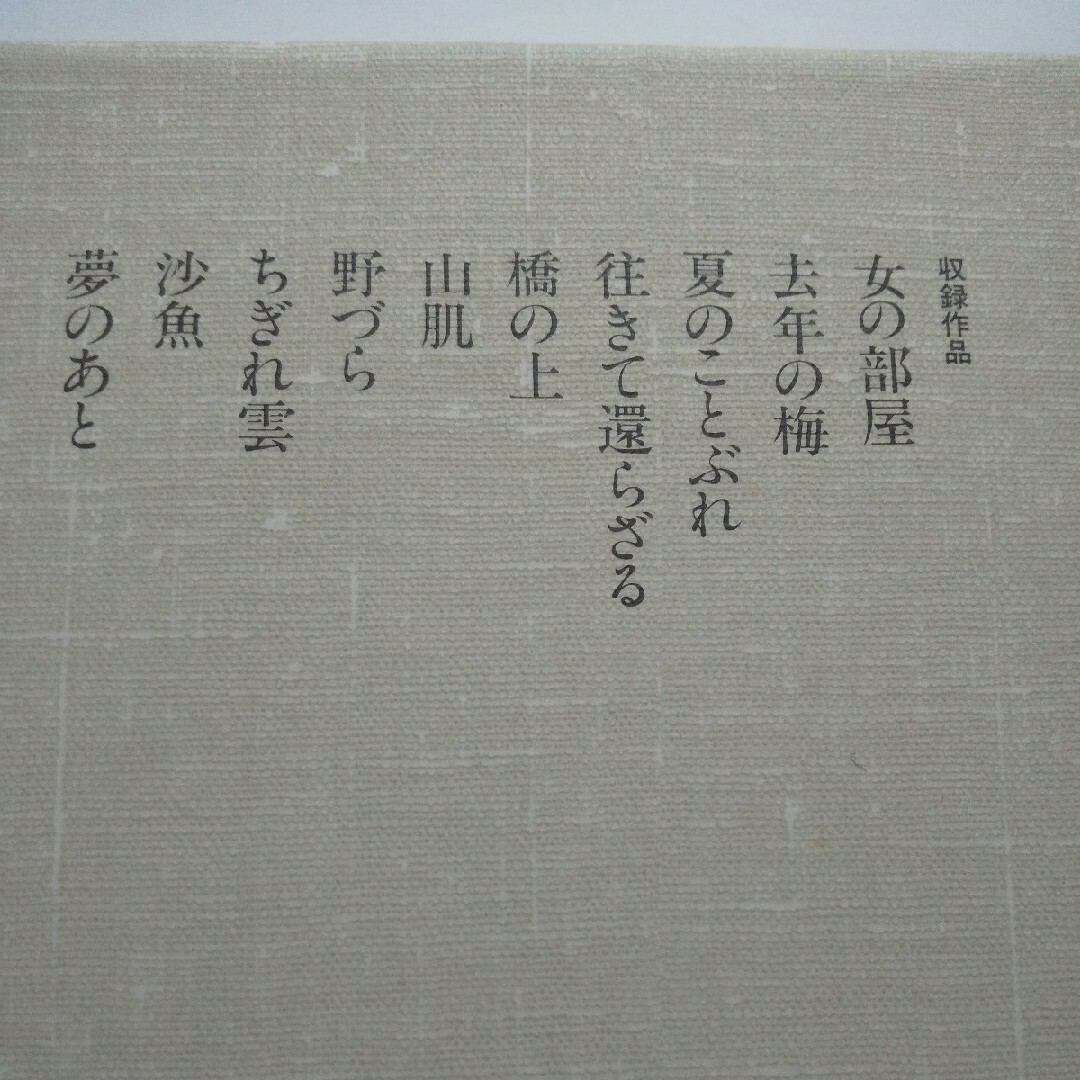 収録作品
女の部屋
去年の梅
夏のことぶれ
往きて還らざる
橋の上
山肌
野づら
ちぎれ雲
沙魚
夢のあと